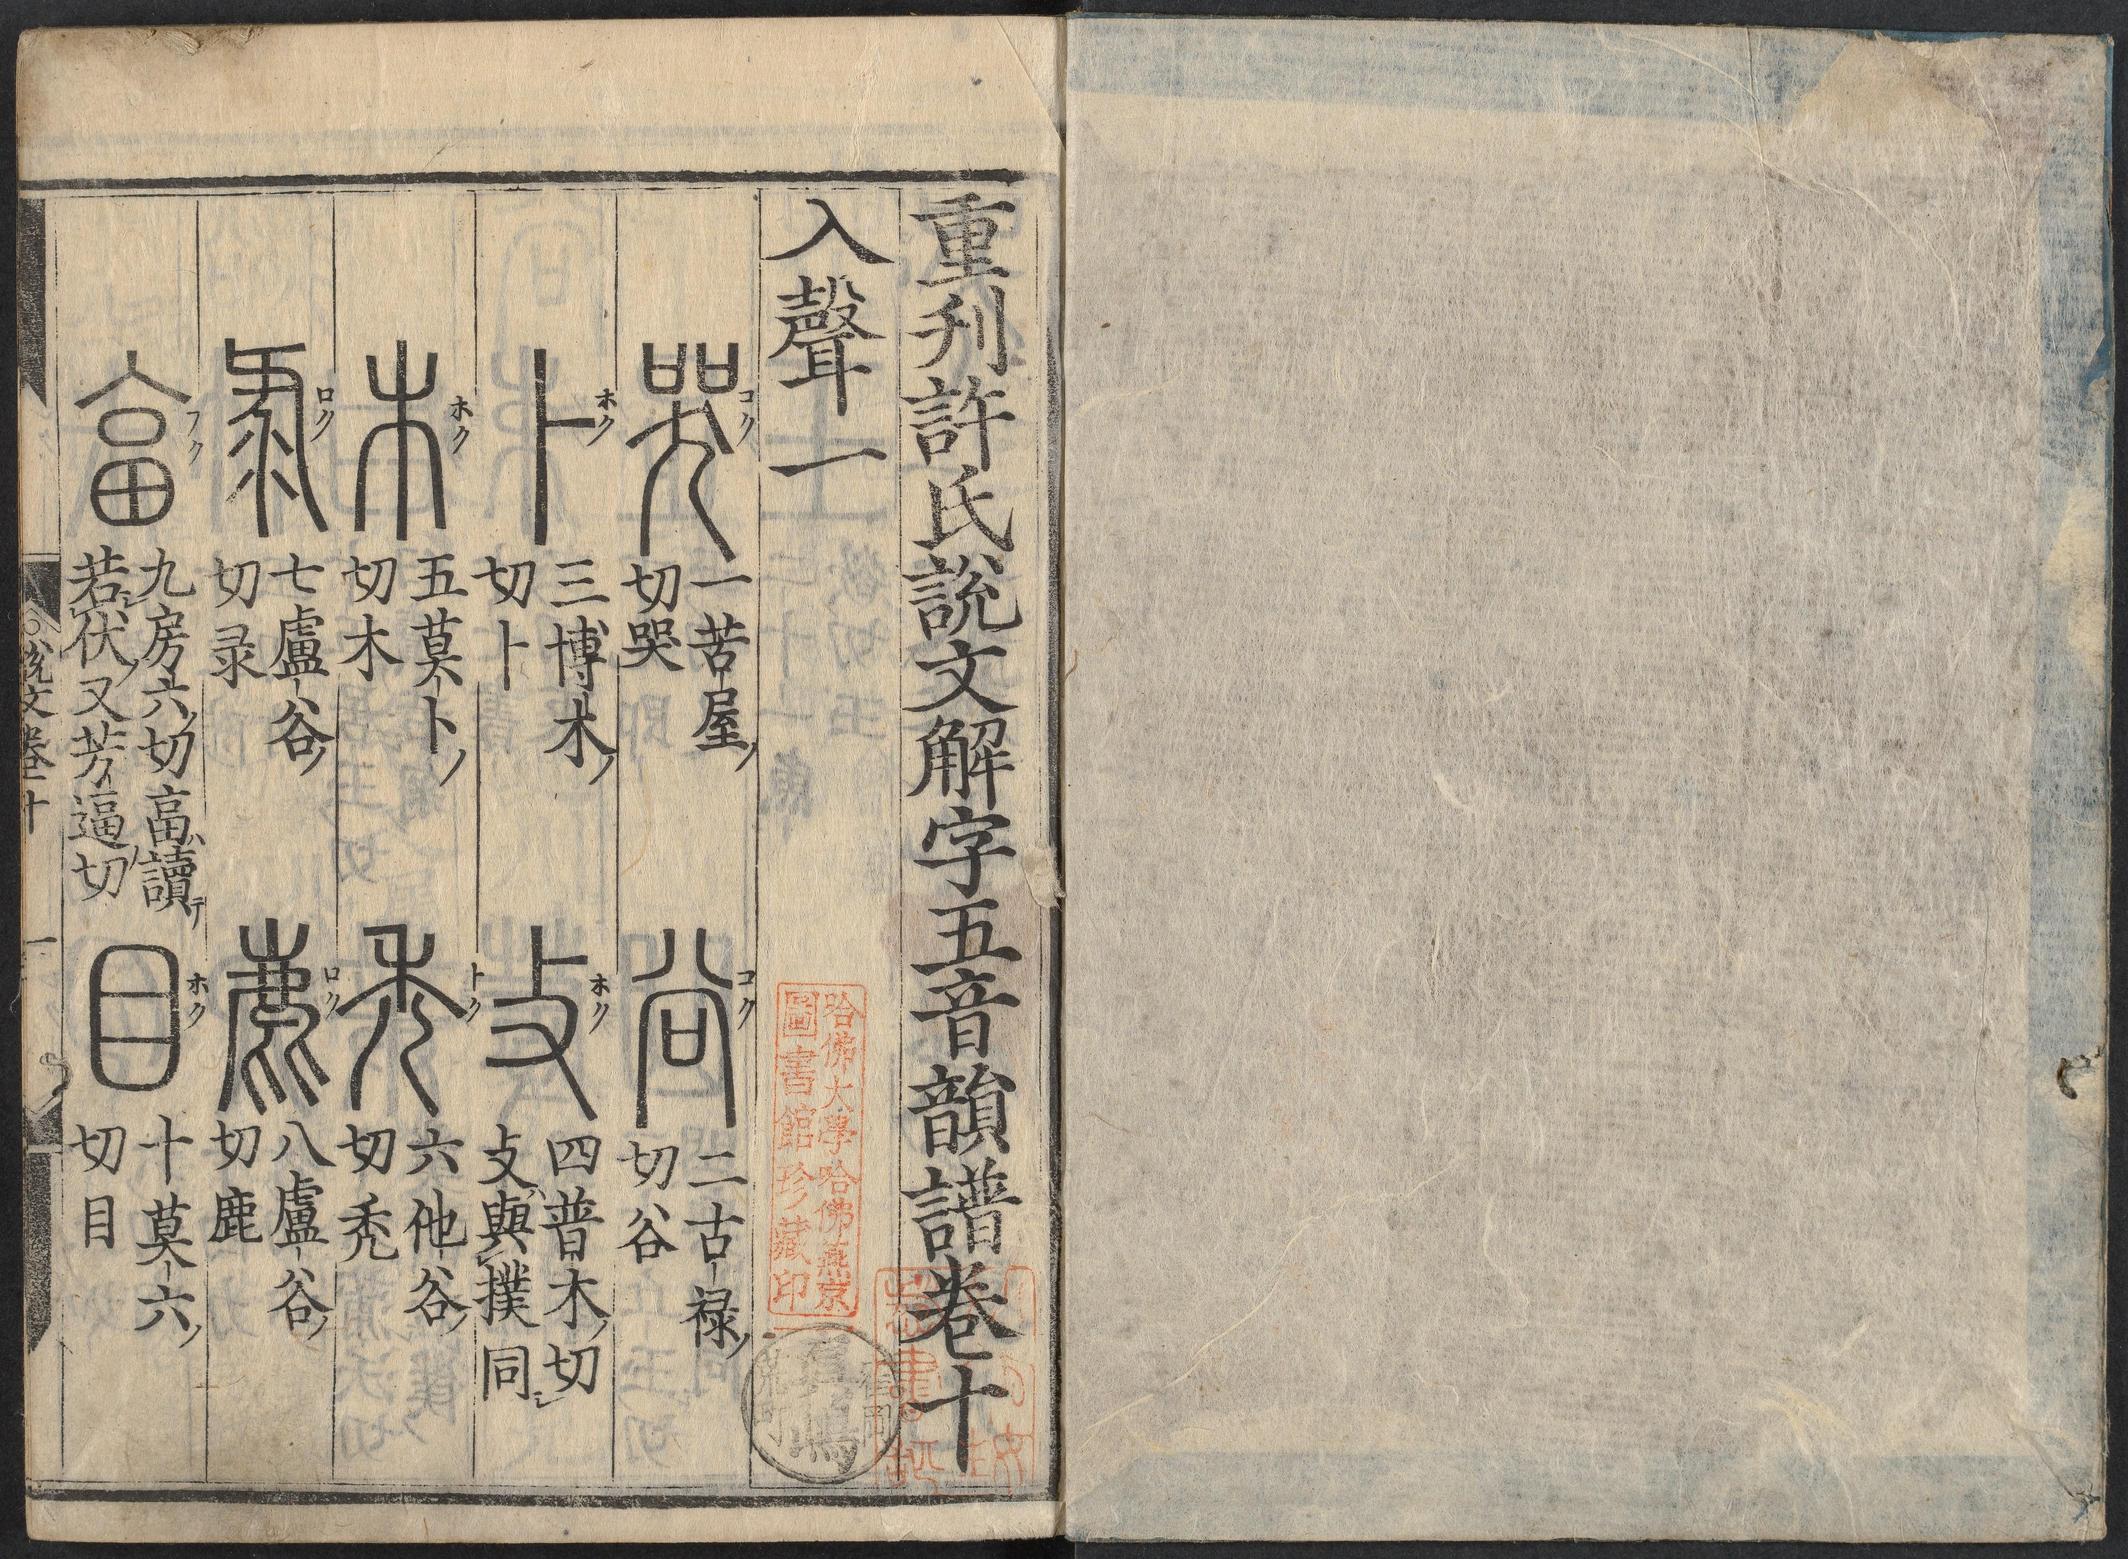 重刋許氏說文解字五音韻譜卷十
入聲一
哭 コク
一苦屋
切哭
谷 コク
二古祿
切谷
卜 ホク
三博木
切卜
攴 ホク
四普木切
攴與撲同
木 ホク
五莫卜
切木
禿 トク
六他谷
切禿
彔 ロク
七盧谷
切录
鹿 ロク
八盧谷
切鹿
畐 フク
九房六切畐讀
若伏又芳逼切
目 ホク
十莫六
切目
說文卷十
一
哈佛大學哈佛燕京
圖書館珍藏印